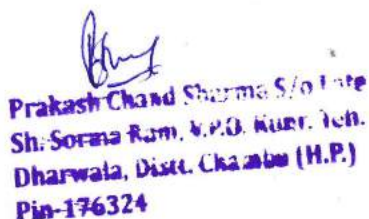 Prakash Chand Sharma S/o Late
Sh. Sorma Ram, V.P.O. Kunr. Teh.
Dharwala, Distt. Chamba (H.P.)
Pin-176324